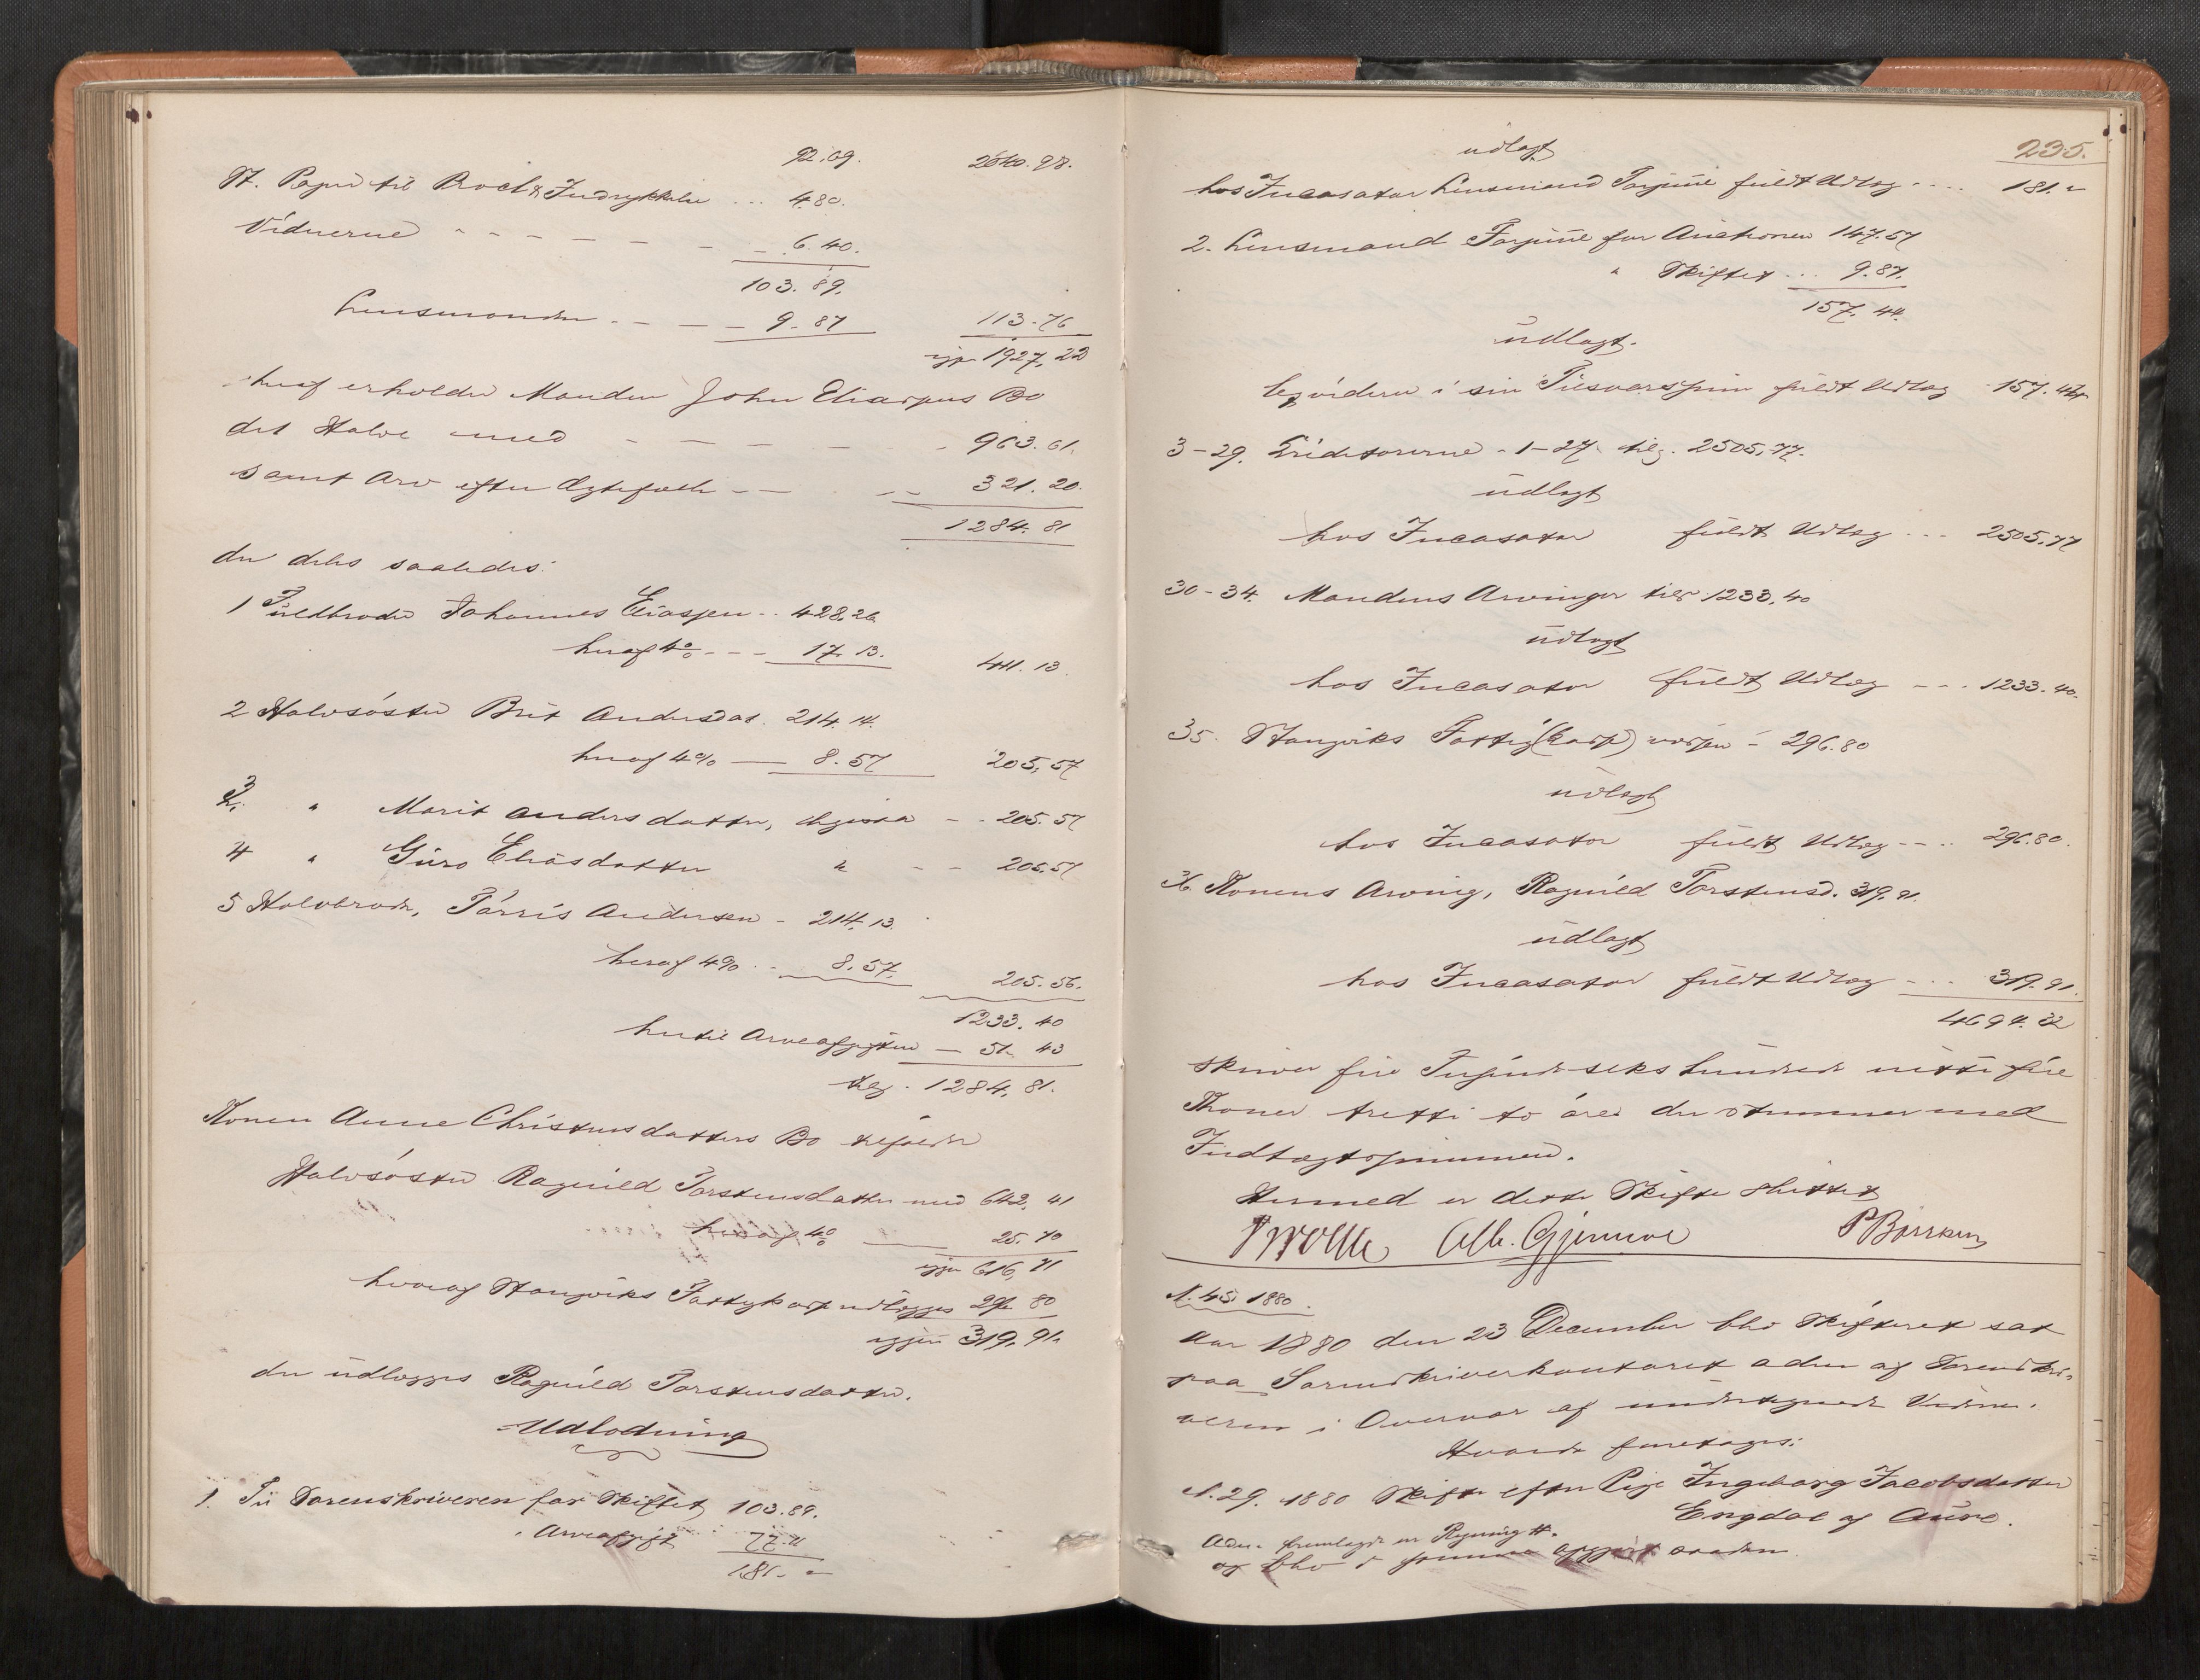 92.09. 2040.98.
St. Papir til Procl. & Indrykkelse ... 4.80.
Vidnerne - - - - - 6.40.
103.89.
Lensmanden - - - 9.87 113.76
igjen 1927.22
heraf erholder Manden John Eliaspns Bo
det Halve med - - - - 963.61.
samt Arv efter Ægtefælle - - - 321.20.
1284.81
der deles saaledes:
1 Fuldbroder Johannes Eliassen .. 428.26
heraf 4% - - - 17.13. 411.13.
2 Halvsøster Brit Andersdat. 214.14.
heraf 4% — 8.57 205.57
3. " Marit Andersdatter, ligesaa - - 205.57
4 " Guro Eliasdatter " - - 205.57
5 Halvbroder, Andersen - 214.13.
heraf 4% .. 8.57. 205.56.
1233.40
hertil Arveafgiften — 51.43
tilsg. 1284.81.
Konen Anne Christensdatters Bo tilfalder
Halvsøster Ragnild Torstensdatter med 642.41
heraf 4% — 25.70
igjen 616.71
hvoraf Stangviks Fattigkasse udlægges 296.80
igjen 319.91.
der udlægges Ragnild Torstensdatter.
Udlodning
1. Til Sorenskriveren for Skiftet 103.89.
" Arveafgift 77.11
181. "
235.
udlagt
hos Incasator Lensmand fuldt Udlæg .... 181. "
2. Lensmand for Auctionen 147.57
" Skiftet ... 9.87.
157.44.
udlagt.
Liqviderer i sin Tilsvarssum fuldt Udlæg 157.44
3-29. Creditorerne - 1-27. tilsg. 2505.77.
udlagt
hos Incasator fuldt Udlæg ... 2505.77
30-34. Mandens Arvinger tils. 1233.40
udlagt
hos Incasator fuldt Udlæg - - - 1233.40.
35. Stangviks Fattig(kasse)væsen - 296.80
udlagt
hos Incasator fuldt Udlæg - - .. 296.80.
36. Konens Arving, Ragnild Torstensd. 319.91.
udlagt
hos Incasator fuldt Udlæg ... 319.91.
4694.32
skriver fire Tusinde seks hundrede nitti fire
Kroner tretti to øre der stemmer med
Indtægtssummen.
Hermed er dette Skifte sluttet
P Børresen
N. 45. 1880.
Aar 1880 den 23 December blev Skifteret sat
paa Sorenskriverkontoret adm. af Sorenskri-
veren i Overvær af undertegnede Vidner.
Hvorda foretages:
N. 29. 1880 Skifte efter Pige Ingeborg Jacobsdatter
Engdal af Aure.
Adm. fremlagde en Regning H.
og blev summa opgjort saadan